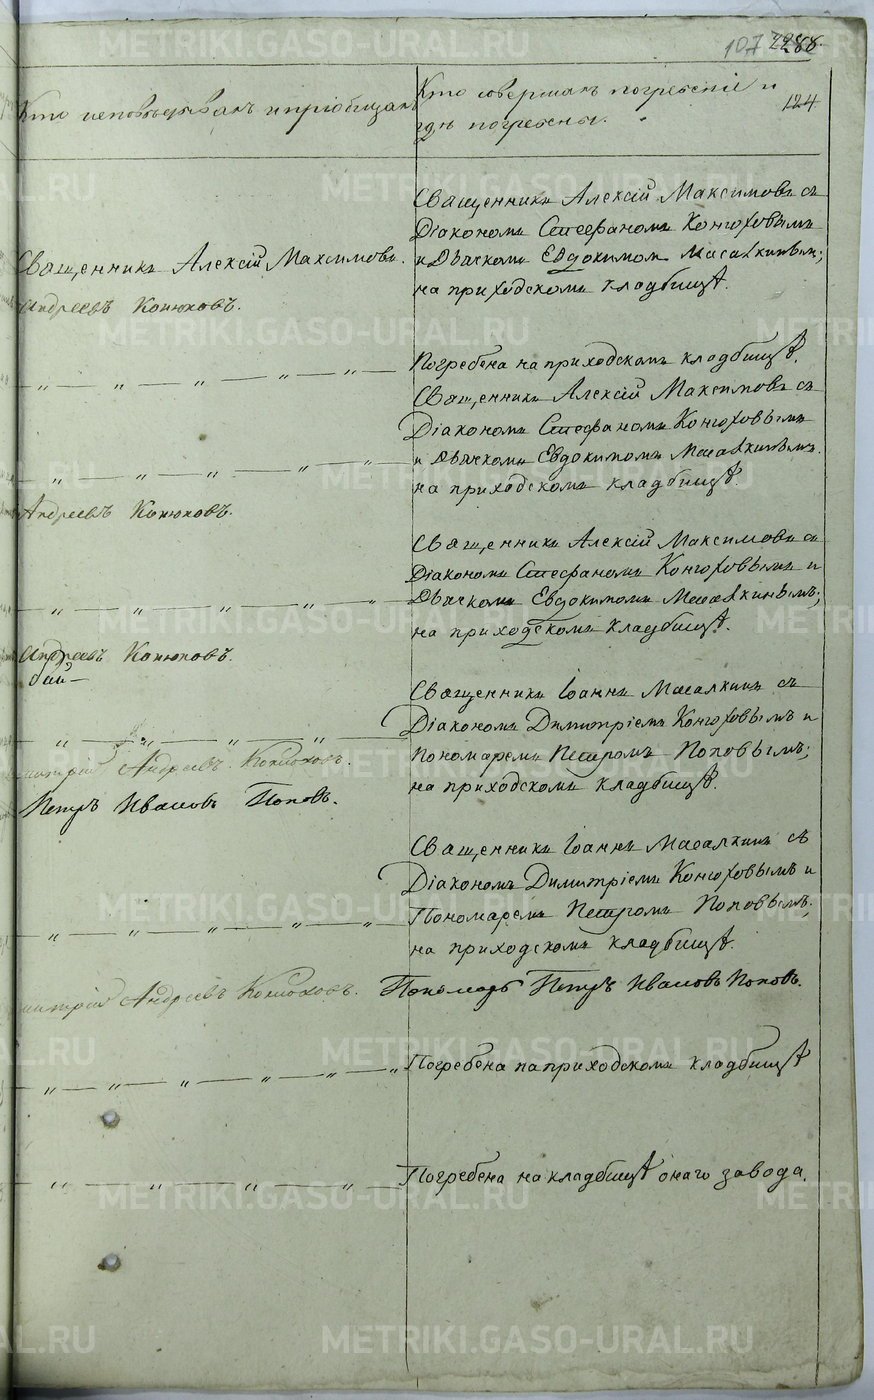 107 288
Кто исповѣдывалъ и пріобщалъ
Кто совершалъ погребеніе и
гдѣ погребены.
124
Священникъ Алексій Максимовъ съ
Діакономъ Стефаномъ Конюховымъ
и Дьячкомъ Евдокимомъ Масалкинымъ;
на приходскомъ кладбищѣ.
Священникъ Алексій Максимовъ.
Андреевъ Конюховъ.
Погребена на приходскомъ кладбищѣ.
Священникъ Алексій Максимовъ съ
Діакономъ Стефаномъ Конюховымъ
и Дьячкомъ Евдокимомъ Масалкинымъ.
на приходскомъ кладбищѣ.
Андреевъ Конюховъ.
Священникъ Алексій Максимовъ съ
Діакономъ Стефаномъ Конюховымъ и
Дьячкомъ Евдокимомъ Масалкинымъ;
на приходскомъ кладбищѣ.
Андреевъ Конюховъ.
Священникъ Іоаннъ Масалкинъ съ
Діакономъ Димитріемъ Конюховымъ и
Пономаремъ Петромъ Поповымъ;
на приходскомъ кладбищѣ.
Андреевъ Конюховъ.
Петръ Ивановъ Поповъ.
Священникъ Іоаннъ Масалкинъ съ
Діакономъ Димитріемъ Конюховымъ и
Пономаремъ Петромъ Поповымъ;
на приходскомъ кладбищѣ.
Андреевъ Конюховъ. Пономарь Петръ Ивановъ Поповъ.
Погребена на приходскомъ кладбищѣ
Погребена на кладбищѣ онаго завода.
METRIKI.GASO-URAL.RU